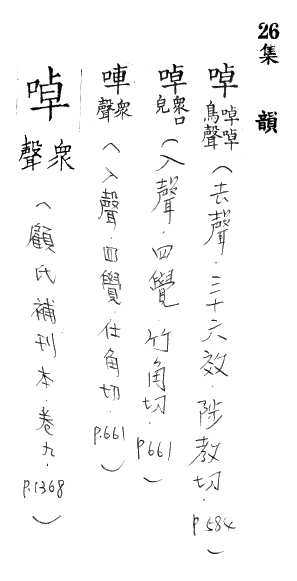 26集韻
啅啅啅鳥聲(去聲.三十六效.陟教切.p584)
啅衆口皃(入聲.四覺.竹角切.p661)
啅衆聲(入聲.四覺.仕角切.p.661)
啅衆聲(顧氏補刊本.卷九.p.1368)